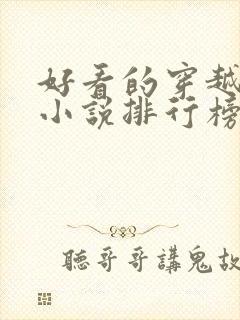 好看的穿越
小说排行榜
聽哥哥講鬼故